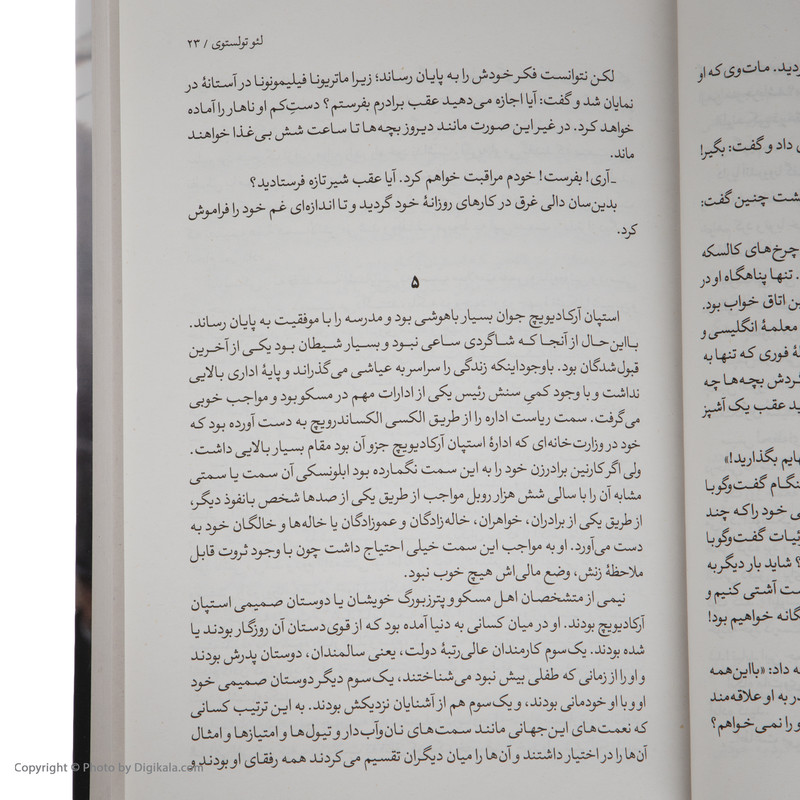 لئو تولستوی / ۲۳
لکن نتوانست فکر خودش را به پایان رساند؛ زیرا ماتریونا فیلیمونونا در آستانهٔ در
نمایان شد و گفت: آیا اجازه می‌دهید عقب برادرم بفرستم؟ دست‌کم او ناهار را آماده
خواهد کرد. در غیر این صورت مانند دیروز بچه‌ها تا ساعت شش بی‌غذا خواهند
ماند.
ـ آری! بفرست! خودم مراقبت خواهم کرد. آیا عقب شیر تازه فرستادید؟
بدین‌سان دالی غرق در کارهای روزانهٔ خود گردید و تا اندازه‌ای غم خود را فراموش
کرد.
۵
استپان آرکادیویچ جوان بسیار باهوشی بود و مدرسه را با موفقیت به پایان رساند.
بااین‌حال از آنجا که شاگردی ساعی نبود و بسیار شیطان بود یکی از آخرین
قبول‌شدگان بود. باوجوداینکه زندگی را سراسر به عیاشی می‌گذراند و پایهٔ اداری بالایی
نداشت و با وجود کمی سنش رئیس یکی از ادارات مهم در مسکو بود و مواجب خوبی
می‌گرفت. سمت ریاست اداره را از طریق الکسی الکساندرویچ به دست آورده بود که
خود در وزارت‌خانه‌ای که ادارهٔ استپان آرکادیویچ جزو آن بود مقام بسیار بالایی داشت.
ولی اگر کارنین برادرزن خود را به این سمت نگمارده بود ابلونسکی آن سمت یا سمتی
مشابه آن را با سالی شش هزار روبل مواجب از طریق یکی از صدها شخص بانفوذ دیگر،
از طریق یکی از برادران، خواهران، خاله‌زادگان و عموزادگان یا خاله‌ها و خالگان خود به
دست می‌آورد. او به مواجب این سمت خیلی احتیاج داشت چون با وجود ثروت قابل
ملاحظهٔ زنش، وضع مالی‌اش هیچ خوب نبود.
نیمی از متشخصان اهل مسکو و پترزبورگ خویشان یا دوستان صمیمی استپان
آرکادیویچ بودند. او در میان کسانی به دنیا آمده بود که از قوی‌دستان آن روزگار بودند یا
شده بودند. یک‌سوم کارمندان عالی‌رتبهٔ دولت، یعنی سالمندان، دوستان پدرش بودند
و او را از زمانی که طفلی بیش نبود می‌شناختند، یک‌سوم دیگر دوستان صمیمی خود
او و با او خودمانی بودند، و یک‌سوم هم از آشنایان نزدیکش بودند. به این ترتیب کسانی
که نعمت‌های این‌جهانی مانند سمت‌های نان‌وآب‌دار و تیول‌ها و امتیازها و امثال
آن‌ها را در اختیار داشتند و آن‌ها را میان دیگران تقسیم می‌کردند همه رفقای او بودند و
دید. مات‌وی که او
داد و گفت: بگیر!
شت چنین گفت:
چرخ‌های کالسکه
. تنها پناهگاه او در
ین اتاق خواب بود.
معلمهٔ انگلیسی و
هٔ فوری که تنها به
گردش بچه‌ها چه
ید عقب یک آشپز
هایم بگذارید!»
نگام گفت‌وگو با
ی خود را که چند
ئیات گفت‌وگو با
؟ شاید بار دیگر به
ست آشتی کنیم و
گانه خواهیم بود!
ه داد: «بااین‌همه
در به او علاقه‌مند
و را نمی‌خواهم؟
Copyright © Photo by Digikala.com